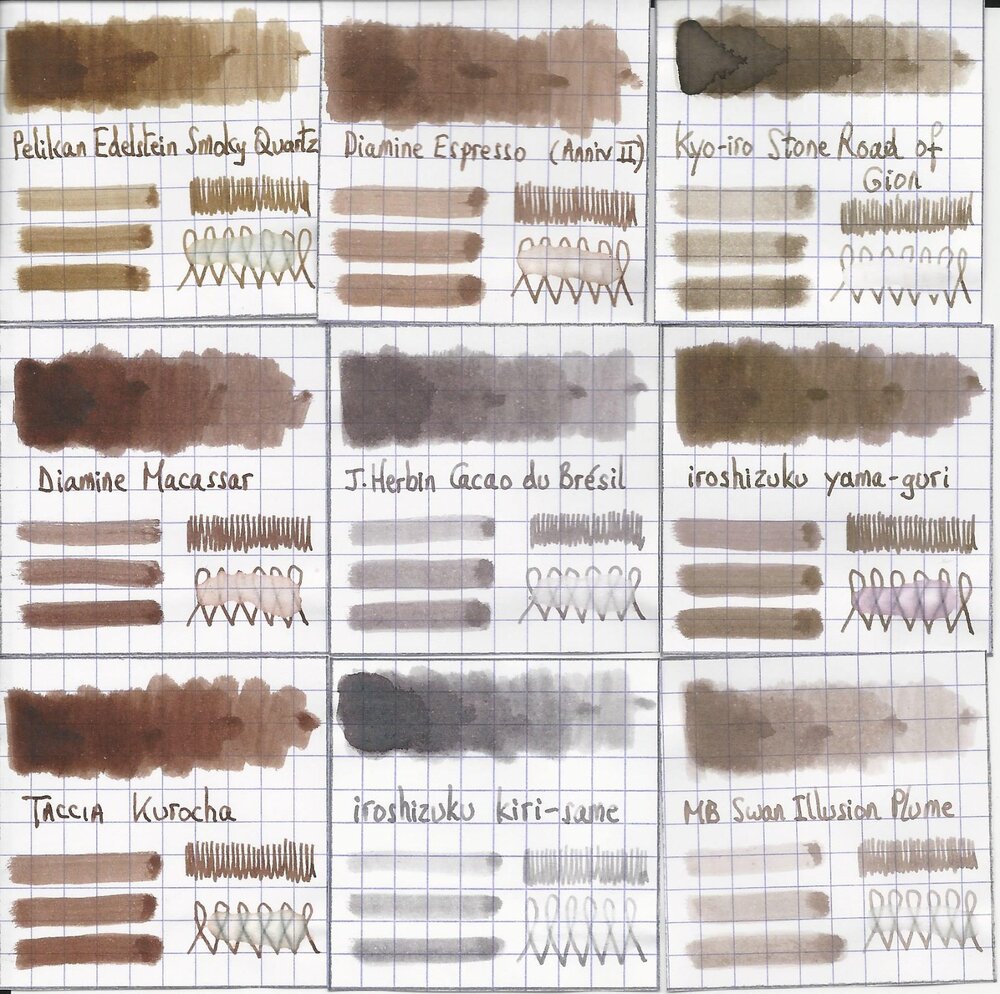 Pelikan Edelstein Smoky Quartz
Diamine Espresso (Anniv II)
Kyo-iro Stone Road of
Gion
Diamine Macassar
J. Herbin Cacao du Brésil
iroshizuku yama-guri
TACCIA Kurocha
iroshizuku kiri-same
MB Swan Illusion Plume